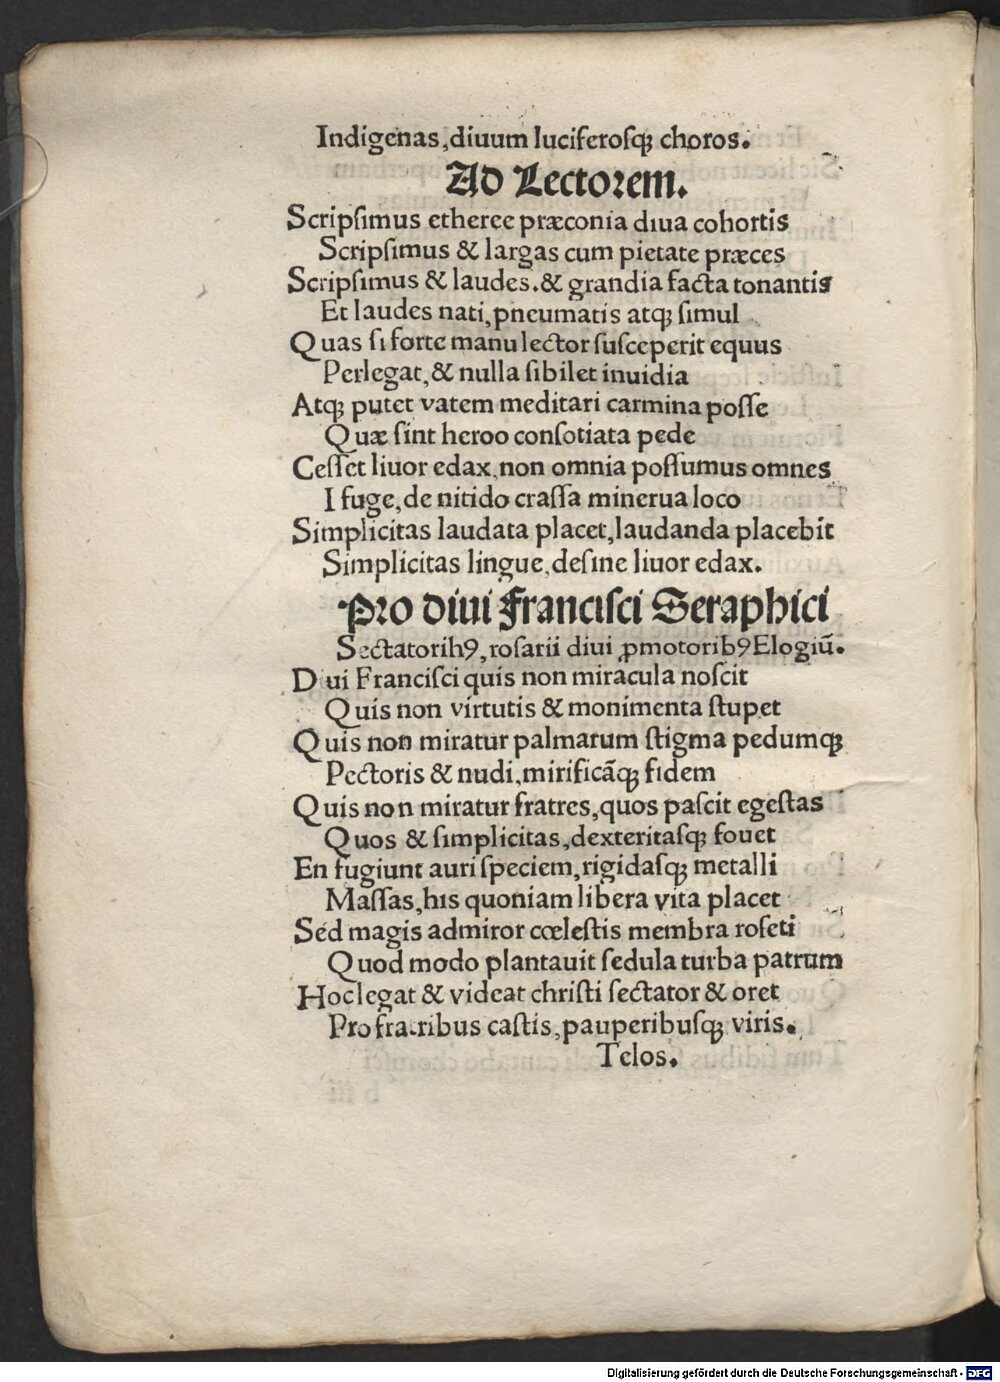 Indigenas,diuum luciferoſqꝫ choros.
Ad Lectorem.
Scripſimus etheree præconia diua cohortis
Scripſimus & largas cum pietate præces
Scripſimus & laudes.& grandia facta tonantis
Et laudes nati,pneumatis atqꝫ ſimul
Quas ſi forte manu lector ſuſceperit equus
Perlegat,& nulla ſibilet inuidia
Atqꝫ putet vatem meditari carmina poſſe
Quæ ſint heroo conſotiata pede
Ceſſet liuor edax,non omnia poſſumus omnes
I fuge,de nitido craſſa minerua loco
Simplicitas laudata placet,laudanda placebit
Simplicitas lingue,deſine liuor edax.
Pro diui Franciſci Seraphici
Sectatoribꝰ,roſarii diui ꝓmotoribꝰ Elogiũ.
Diui Franciſci quis non miracula noſcit
Quis non virtutis & monimenta ſtupet
Quis non miratur palmarum ſtigma pedumqꝫ
Pectoris & nudi,mirificãqꝫ fidem
Quis non miratur fratres,quos paſcit egeſtas
Quos & ſimplicitas,dexteritaſqꝫ fouet
En fugiunt auri ſpeciem,rigidaſqꝫ metalli
Maſſas,his quoniam libera vita placet
Sed magis admiror cœleſtis membra roſeti
Quod modo plantauit ſedula turba patrum
Hoc legat & videat chriſti ſectator & oret
Pro fratribus caſtis,pauperibuſqꝫ viris.
Telos.
Digitalisierung gefördert durch die Deutsche Forschungsgemeinschaft - DFG